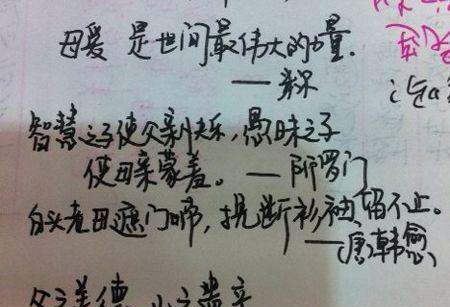 母爱是世间最伟大的力量.
——米尔
智慧之子使父亲快乐,愚昧之子
使母亲蒙羞。——所罗门
白头老母遮门啼,挽断衫袖留不止。
——(唐)韩愈
父之美德,